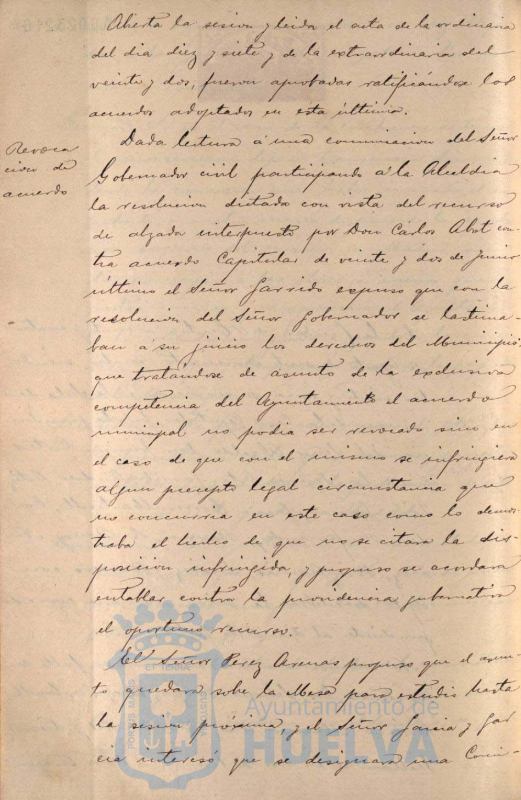 Abierta la sesion y leida el acta de la ordinaria
del dia diez y siete y de la extraordinaria del
veinte y dos, fueron aprobadas ratificándose los
acuerdos adoptados en esta última.
Revoca
cion de
acuerdo
Dada lectura á una comunicacion del Señor
Gobernador civil participando á la Alcaldia
la resolucion dictada con vista del recurso
de alzada interpuesto por Don Carlos Abot con-
tra acuerdo Capitular de veinte y dos de Junio
último el Señor Garrido expuso que con la
resolucion del Señor Gobernador se lastima-
ban a su juicio los derechos del Municipio,
que tratándose de asunto de la exclusiva
competencia del Ayuntamiento el acuerdo
municipal no podia ser revocado sino en
el caso de que con el mismo se infringiera
algun precepto legal circunstancia que
no concurria en este caso como lo demos-
traba el hecho de que no se citara la dis-
posicion infringida, y propuso se acordara
entablar contra la providencia gubernativa
el oportuno recurso.
El Señor Perez Arenas propuso que el asun-
to quedara sobre la Mesa para estudio hasta
la sesion próxima, y el Señor Garcia y Gar
cia interesó que se designara una Comi-
Ayuntamiento de
HUELVA